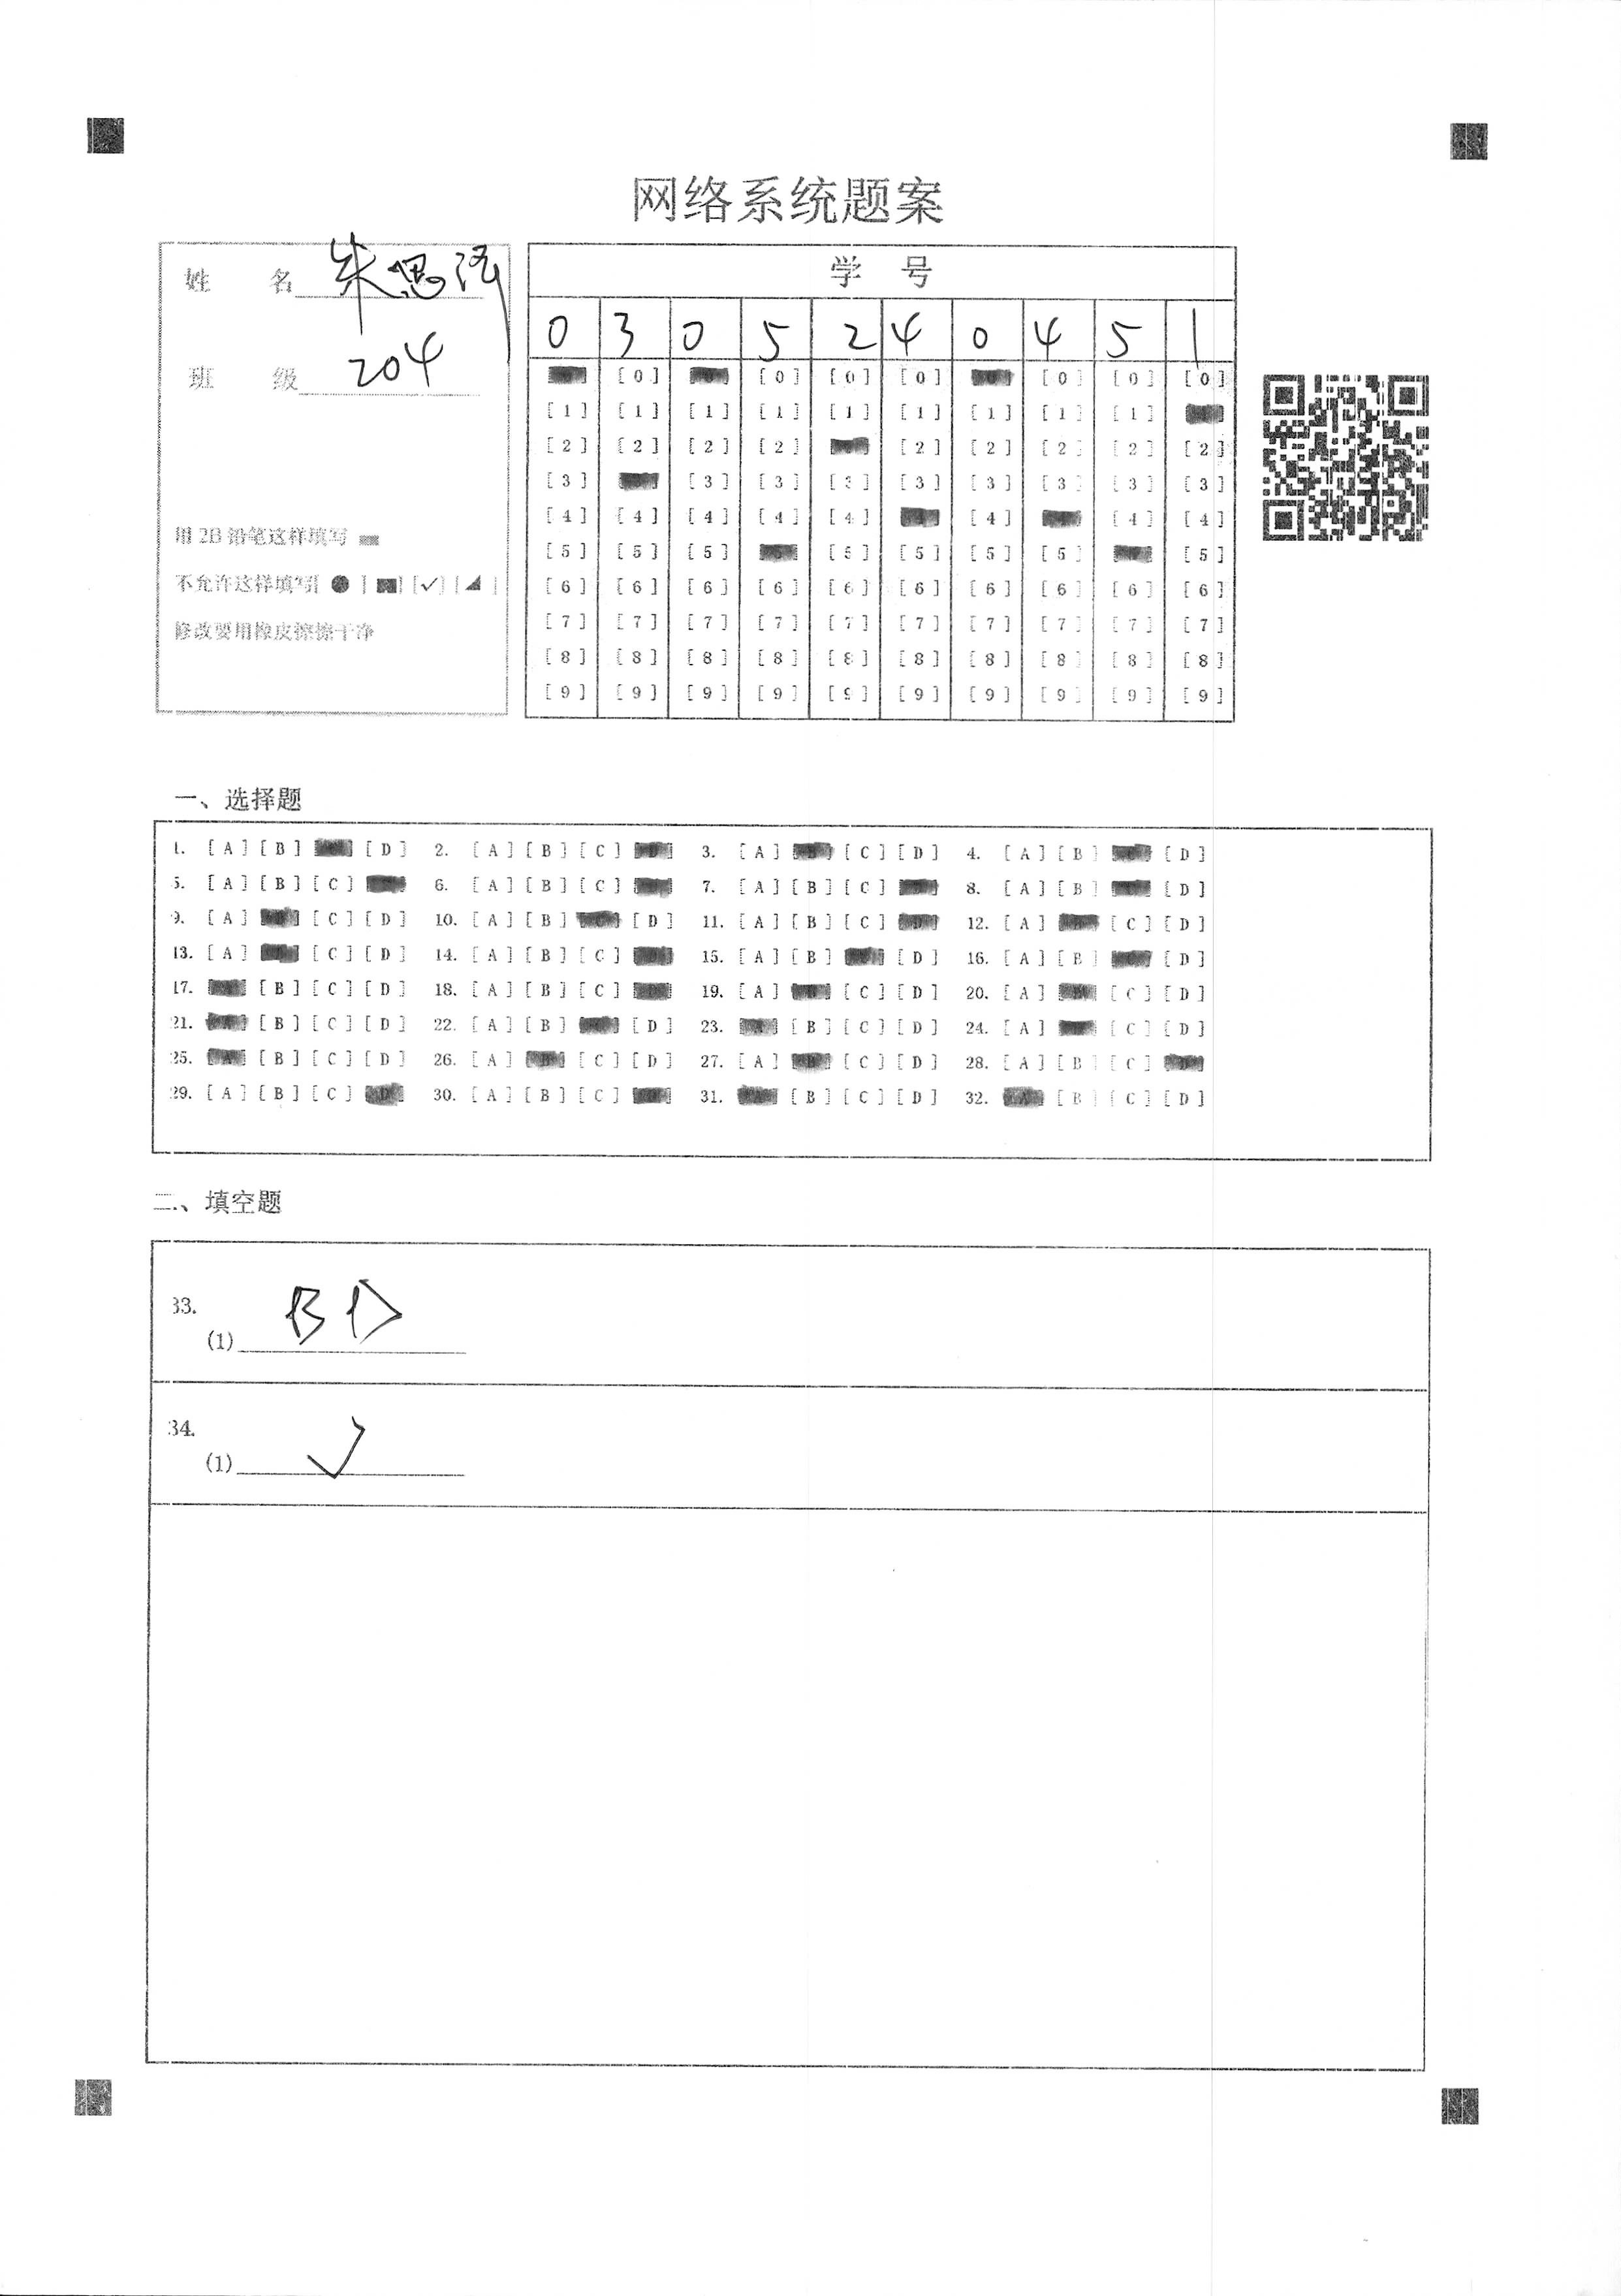 网络系统题案
姓 名 朱思
班 级 204
用 2B 铅笔这样填写
不允许这样填写[ ● ] [ ■ ] [ ✓ ] [ ◢ ]
修改要用橡皮擦擦干净
学 号
0 3 0 5 2 4 0 4 5 1
[0] [0] [0] [0] [0] [0] [0]
[1] [1] [1] [1] [1] [1] [1] [1] [1]
[2] [2] [2] [2] [2] [2] [2] [2] [2]
[3] [3] [3] [3] [3] [3] [3] [3] [3]
[4] [4] [4] [4] [4] [4] [4] [4]
[5] [5] [5] [5] [5] [5] [5] [5]
[6] [6] [6] [6] [6] [6] [6] [6] [6] [6]
[7] [7] [7] [7] [7] [7] [7] [7] [7] [7]
[8] [8] [8] [8] [8] [8] [8] [8] [8] [8]
[9] [9] [9] [9] [9] [9] [9] [9] [9] [9]
一、选择题
1. [A] [B] [D] 2. [A] [B] [C] 3. [A] [C] [D] 4. [A] [B] [D]
5. [A] [B] [C] 6. [A] [B] [C] 7. [A] [B] [C] 8. [A] [B] [D]
9. [A] [C] [D] 10. [A] [B] [D] 11. [A] [B] [C] 12. [A] [C] [D]
13. [A] [C] [D] 14. [A] [B] [C] 15. [A] [B] [D] 16. [A] [B] [D]
17. [B] [C] [D] 18. [A] [B] [C] 19. [A] [C] [D] 20. [A] [C] [D]
21. [B] [C] [D] 22. [A] [B] [D] 23. [B] [C] [D] 24. [A] [C] [D]
25. [B] [C] [D] 26. [A] [C] [D] 27. [A] [C] [D] 28. [A] [B] [C]
29. [A] [B] [C] 30. [A] [B] [C] 31. [B] [C] [D] 32. [B] [C] [D]
二、填空题
33.
(1) BD
34.
(1) ✓